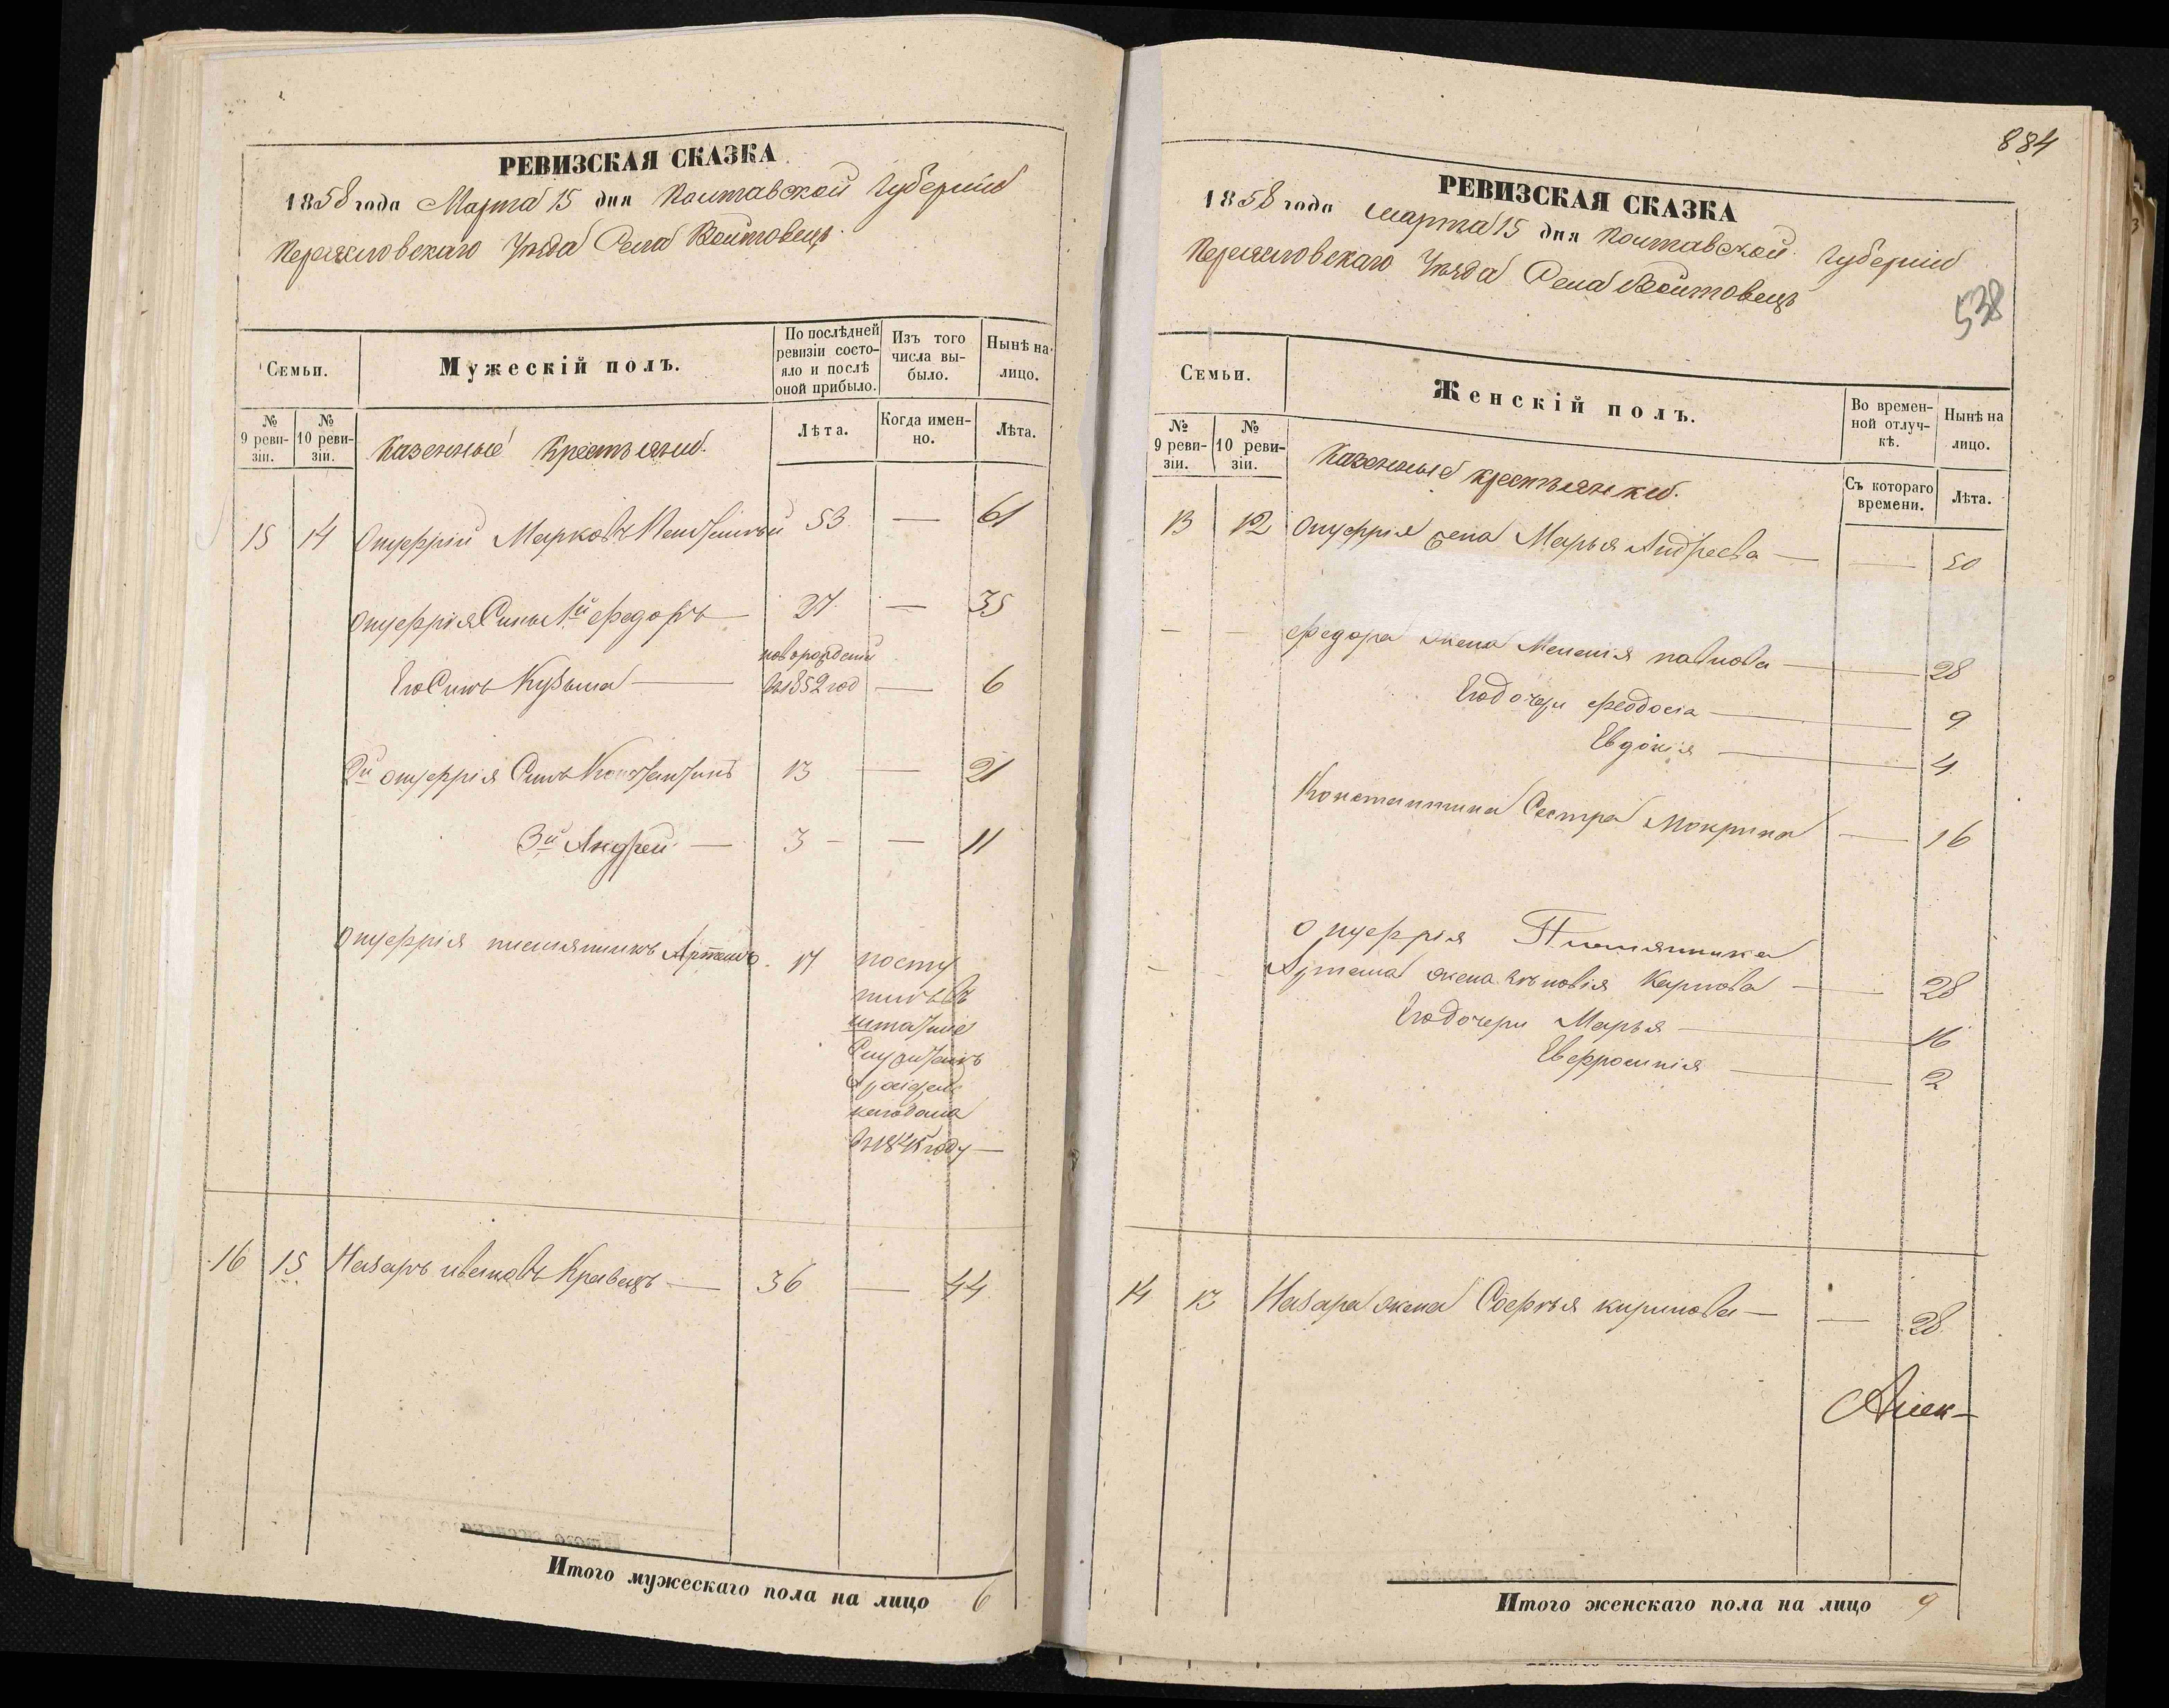 РЕВИЗСКАЯ СКАЗКА
1858 года Марта 15 дня Полтавской Губерніи
Переяславскаго Уѣзда Села Войтовецъ.
Семьи.
Мужескій полъ.
По послѣдней ревизіи состо-
яло и послѣ
оной прибыло.
Изъ того
числа вы-
было.
Нынѣ на-
лицо.
№
9 реви-
зіи.
№
10 реви-
зіи.
Казенные Крестьяни.
Лѣта.
Когда имен-
но.
Лѣта.
15 14 Онуфрій Марковъ 53 — 61
Онуфрія Сынъ 1й Федоръ — 27 — 35
новорожденый
Его Сынъ Кузьма — въ 1852 год — 6
2й Онуфрія Сынъ Константинъ 13 — 21
3й Андрей — 3 — — 11
Онуфрія племянникъ Артемъ. 17 посту
пилъ въ
штатные
кагодома
году —
16 15 Назаръ Ивановъ Кравецъ — 36 — 44
Итого мужескаго пола на лицо 6
884
РЕВИЗСКАЯ СКАЗКА
1858 года марта 15 дня Полтавской Губерніи
Переяславскаго Уѣзда Села Войтовецъ
538
Семьи.
Женскій полъ.
Во времен-
ной отлуч-
кѣ.
Нынѣ на
лицо.
№
9 реви-
зіи.
№
10 реви-
зіи.
Казенные крестьянки.
Съ котораго
времени.
Лѣта.
13 12 Онуфрія жена Марья Андреева — — 50
— — Федора жена Меланія павлова — — 28
Его дочери Феодосія — — 9
Евдокія — — 4
Константина Сестра Мокрина — 16
Онуфрія Племянника
— — Артема жена Зѣновія Карпова — — 28
Его дочери Марья — 16
Евфросинія — — 2
14 13 Назара жена Софья кирилова — — 28
Алек-
Итого женскаго пола на лицо 9